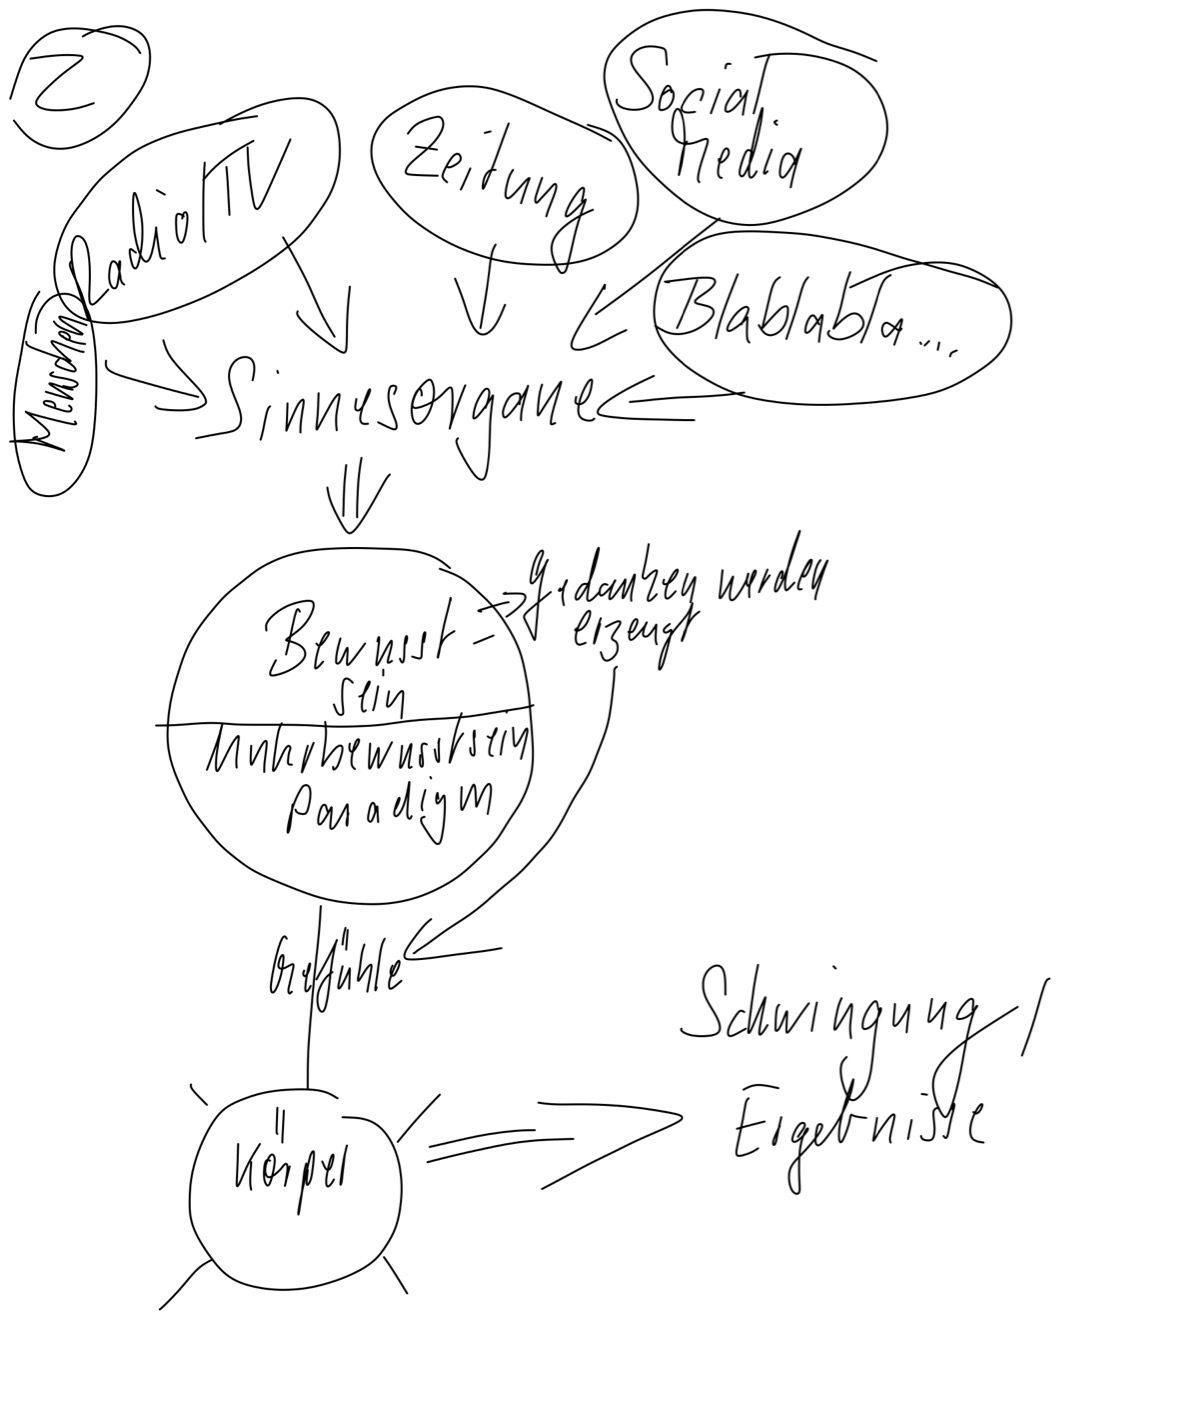 2
Social
Media
Zeitung
Radio/TV
Blablabla...
Menschen
Sinnesorgane
Gedanken werden
erzeugt
Bewusst
sein
Unterbewusstsein
Paradigm
Gefühle
Schwingung /
Ergebnisse
Körper